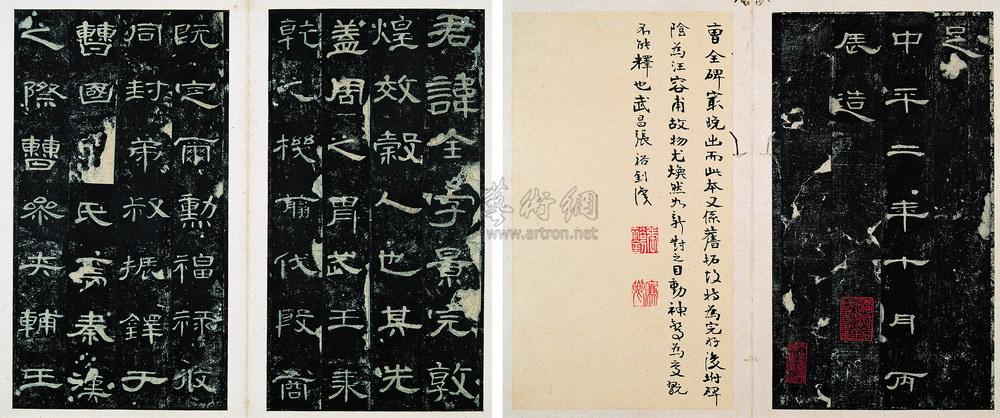 君諱全字景完敦
煌效穀人也其先
蓋周之冑武王秉
乾之機翦伐殷商
既定爾勳福祿攸
同封弟叔振鐸于
曹國氏焉秦漢
之際曹參夾輔王
足
中平二年十月丙
辰造
曹全碑最晚出而此本又係舊拓故特為完好後坿碑
陰為汪容甫故物尤煥然如新對之目動神驚為愛翫
不能釋也武昌張裕釗識
張裕釗
廉卿
藝術網
www.artron.net